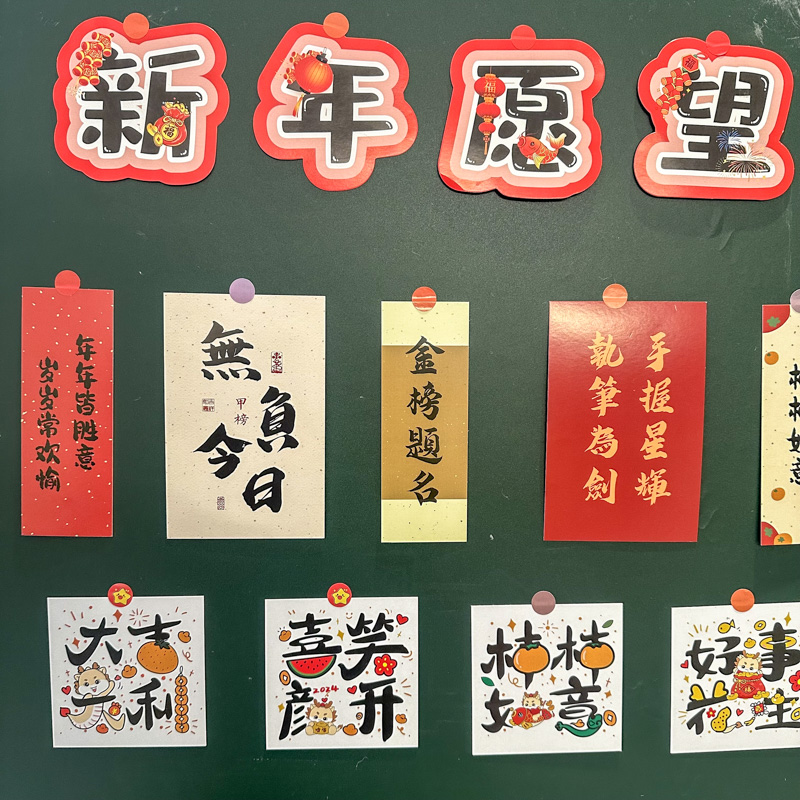 新年愿望
年年皆胜意
岁岁常欢愉
無負今日
甲榜
金榜題名
手握星輝
執筆為劍
柿柿如意
大吉大利
喜笑颜开
2024
桔桔如意
好事花生